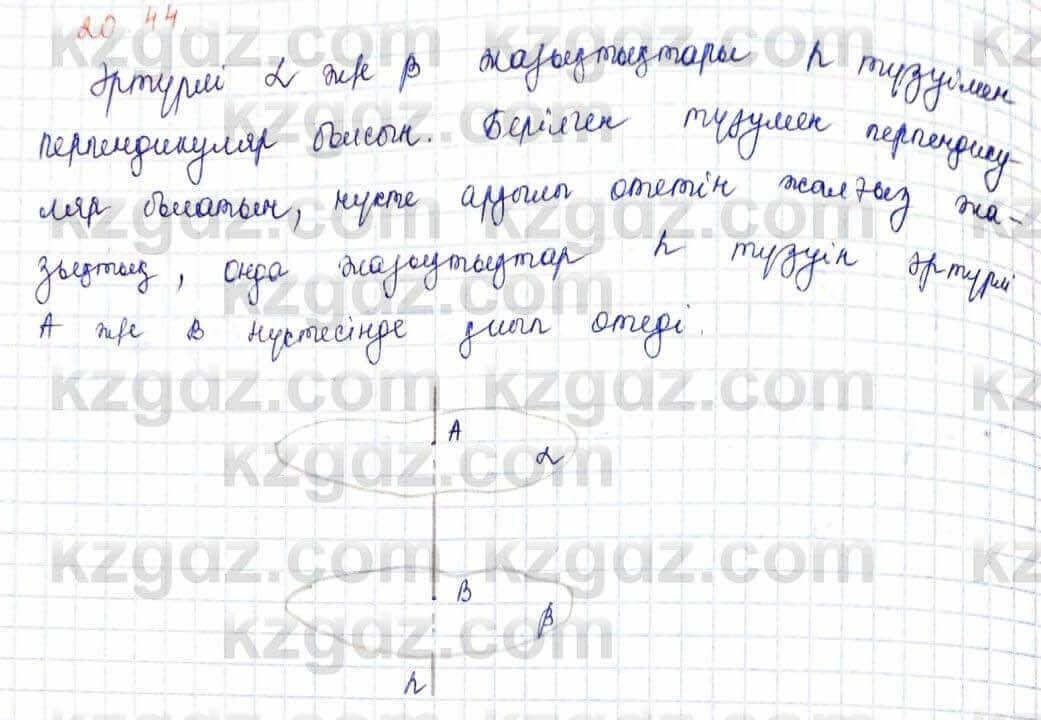 20.44
Әртүрлі α және β жазықтықтары h түзуімен
перпендикуляр болсын. Берілген түзумен перпендику-
ляр болатын, нүкте арқылы өтетін жалғыз жа-
зықтық, онда жазықтықтар h түзуін әртүрлі
A және B нүктесінде қиып өтеді.
A
α
B
β
h
kzgdz.com